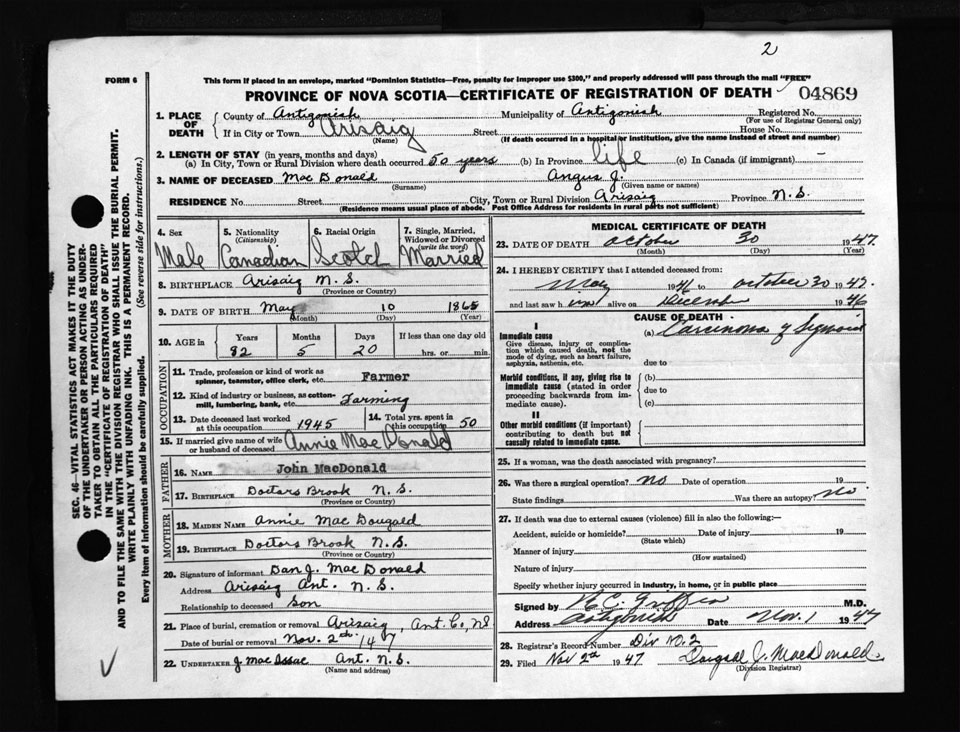 2
FORM 6
This form if placed in an envelope, marked "Dominion Statistics—Free, penalty for improper use $300," and properly addressed will pass through the mail "FREE"
PROVINCE OF NOVA SCOTIA—CERTIFICATE OF REGISTRATION OF DEATH
04869
1. PLACE OF DEATH
County of Antigonish Municipality of Antigonish Registered No.
(For use of Registrar General only)
If in City or Town Arisaig Street House No.
(Name) (If death occurred in a hospital or institution, give the name instead of street and number)
2. LENGTH OF STAY (in years, months and days)
(a) In City, Town or Rural Division where death occurred 50 years (b) In Province life (c) In Canada (if immigrant) —
3. NAME OF DECEASED Mac Donald Angus J.
(Surname) (Given name or names)
RESIDENCE No. Street City, Town or Rural Division Arisaig Province N.S.
(Residence means usual place of abode. Post Office Address for residents in rural parts not sufficient)
4. Sex 5. Nationality (Citizenship) 6. Racial Origin 7. Single, Married, Widowed or Divorced (write the word)
Male Canadian Scotch Married
8. BIRTHPLACE Arisaig N.S.
(Province or Country)
9. DATE OF BIRTH May 10 1865
(Month) (Day) (Year)
10. AGE in Years Months Days If less than one day old
82 5 20 hrs. or min.
OCCUPATION
11. Trade, profession or kind of work as spinner, teamster, office clerk, etc. Farmer
12. Kind of industry or business, as cotton-mill, lumbering, bank, etc. Farming
13. Date deceased last worked at this occupation 1945 14. Total yrs. spent in this occupation 50
15. If married give name of wife or husband of deceased Annie Mac Donald
FATHER
16. NAME John MacDonald
17. BIRTHPLACE Doctors Brook N.S.
(Province or Country)
MOTHER
18. MAIDEN NAME Annie Mac Dougald
19. BIRTHPLACE Doctors Brook N.S.
(Province or Country)
20. Signature of informant Dan J. Mac Donald
Address Arisaig Ant. N.S.
Relationship to deceased Son
21. Place of burial, cremation or removal Arisaig, Ant Co, NS
Date of burial or removal Nov. 2 1947
22. UNDERTAKER J Mac Issac Ant. N.S.
(Name and address)
MEDICAL CERTIFICATE OF DEATH
23. DATE OF DEATH October 30 1947.
(Month) (Day) (Year)
24. I HEREBY CERTIFY that I attended deceased from:
May 1946 to October 30 1947.
and last saw h im alive on December 1946
CAUSE OF DEATH
I
Immediate cause
Give disease, injury or complication which caused death, not the mode of dying, such as heart failure, asphyxia, asthenia, etc.
(a) Carcinoma of Sigmoid
due to
Morbid conditions, if any, giving rise to immediate cause (stated in order proceeding backwards from immediate cause).
(b)
due to
(c)
II
Other morbid conditions (if important) contributing to death but not causally related to immediate cause.
25. If a woman, was the death associated with pregnancy?
26. Was there a surgical operation? no Date of operation 19
State findings Was there an autopsy? no
27. If death was due to external causes (violence) fill in also the following:—
Accident, suicide or homicide? Date of injury 19
(State which)
Manner of injury
(How sustained)
Nature of injury
Specify whether injury occurred in industry, in home, or in public place
Signed by M.D.
Address Antigonish Date Nov. 1 1947
28. Registrar's Record Number Div No. 2
29. Filed Nov 2nd 1947 Dougald J. MacDonald
(Division Registrar)
SEC. 46—VITAL STATISTICS ACT MAKES IT THE DUTY
OF THE UNDERTAKER OR PERSON ACTING AS UNDER-
TAKER TO OBTAIN ALL THE PARTICULARS REQUIRED
IN THE "CERTIFICATE OF REGISTRATION OF DEATH"
AND TO FILE THE SAME WITH THE DIVISION REGISTRAR WHO SHALL ISSUE THE BURIAL PERMIT.
WRITE PLAINLY WITH UNFADING INK. THIS IS A PERMANENT RECORD.
Every item of information should be carefully supplied. (See reverse side for instructions.)